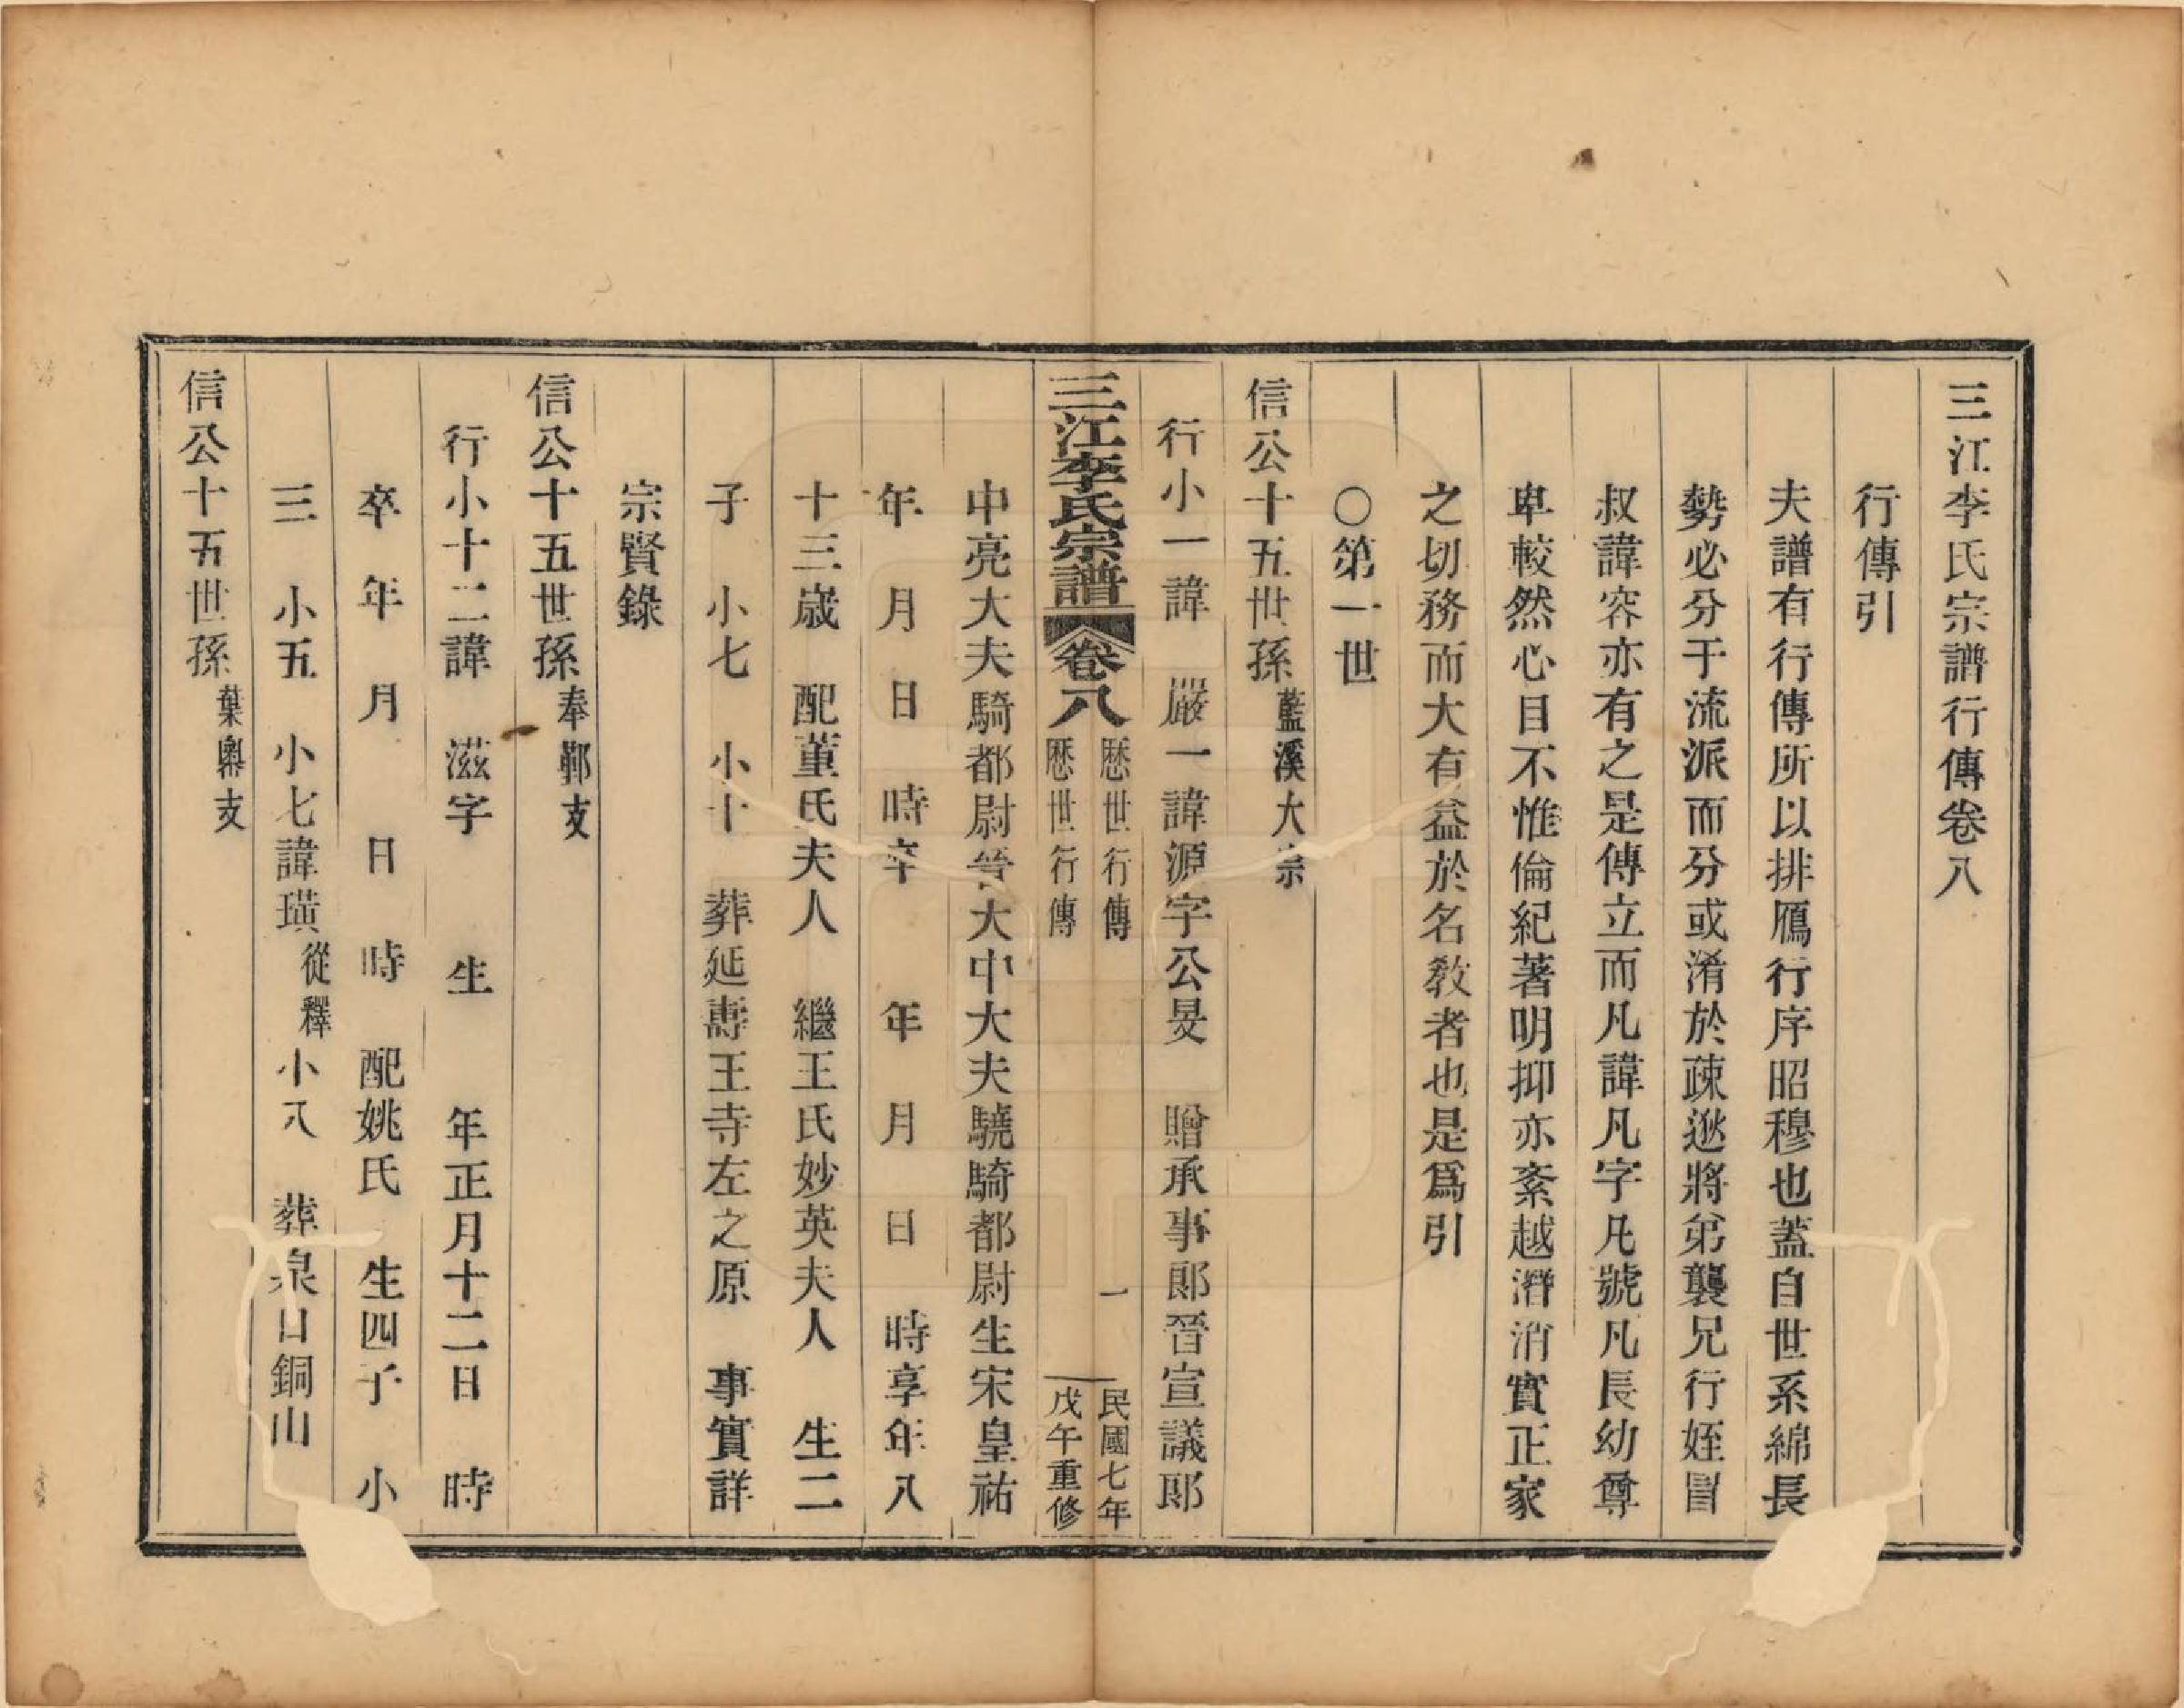 三江李氏宗譜行傳卷八
行傳引
夫譜有行傳所以排鴈行序昭穆也蓋自世系綿長
勢必分于流派而分或淆於疎逖將弟襲兄行姪冒
叔諱容亦有之是傳立而凡諱凡字凡號凡長幼尊
卑較然心目不惟倫紀著明抑亦紊越潛消實正家
之切務而大有益於名敎者也是爲引
○第一世
信公十五世孫藍溪大宗
行小一諱 嚴一諱源字公旻 贈承事郎晉宣議郎
三江李氏宗譜 卷八 歷世行傳 歷世行傳 一 民國七年 戊午重修
中亮大夫騎都尉晉大中大夫驍騎都尉生宋皇祐
年 月 日 時卒 年 月 日 時享年八
十三歲 配董氏夫人 繼王氏妙英夫人 生二
子 小七 小十 葬延壽王寺左之原 事實詳
宗賢錄
信公十五世孫奉鄞支
行小十二諱 滋字 生 年正月十二日 時
卒 年 月 日 時 配姚氏 生四子 小
三 小五 小七諱璜從釋 小八 葬泉口銅山
信公十五世孫葉奧支